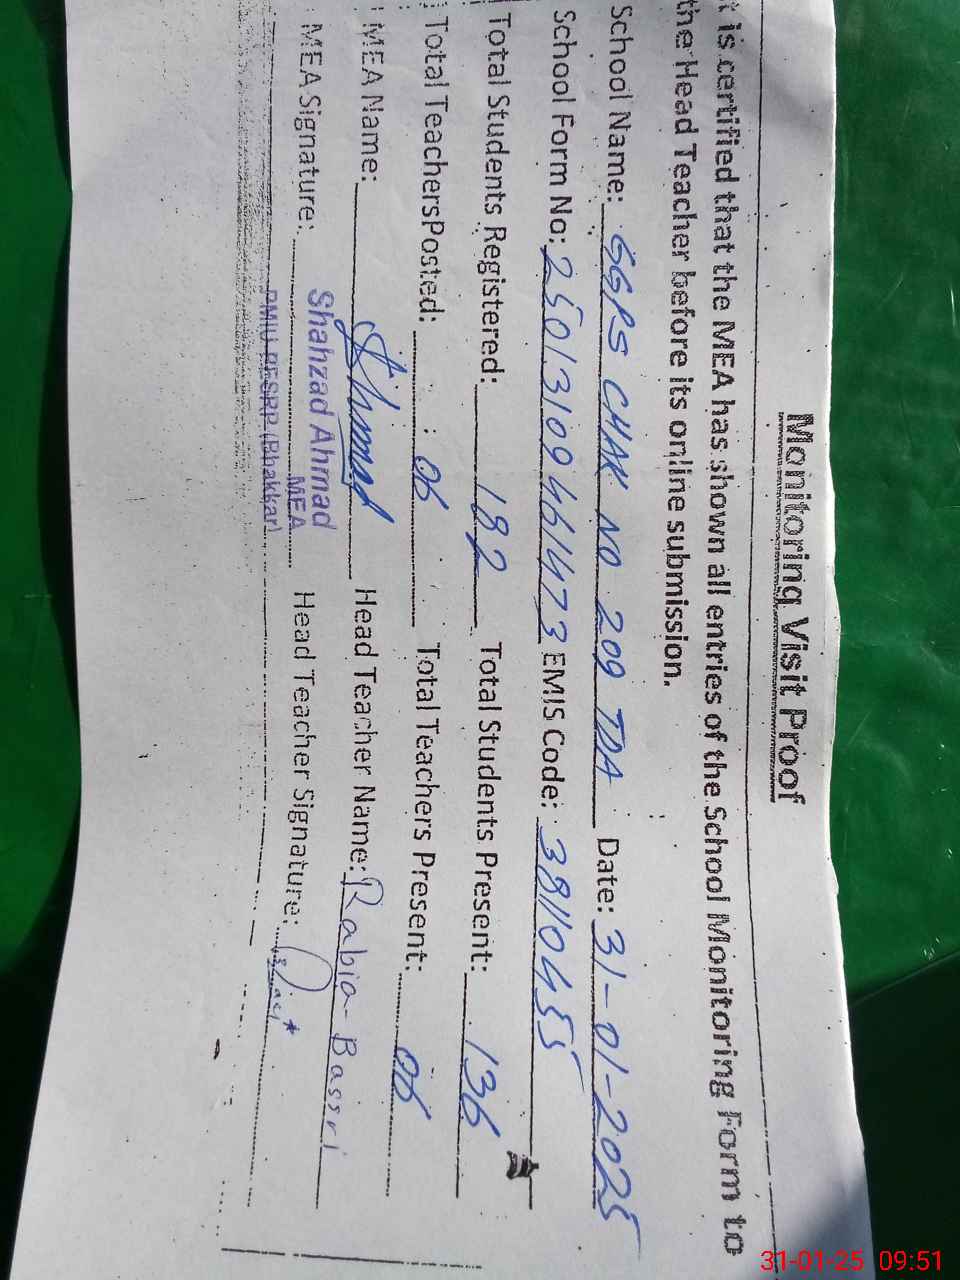 Monitoring Visit Proof
t is certified that the MEA has shown all entries of the School Monitoring Form to
the Head Teacher before its online submission.
School Name: GGPS CHAK NO 209 TDA Date: 31-01-2025
School Form No: 25013109461473 EMIS Code: 38110455
Total Students Registered: 182 Total Students Present: 136
Total TeachersPosted: 06 Total Teachers Present: 06
MEA Name: Ahmad Head Teacher Name: Rabia Bassri
MEA Signature: Head Teacher Signature:
Shahzad Ahmad
MEA
PMIU-PESRP (Bhakkar)
31-01-25 09:51